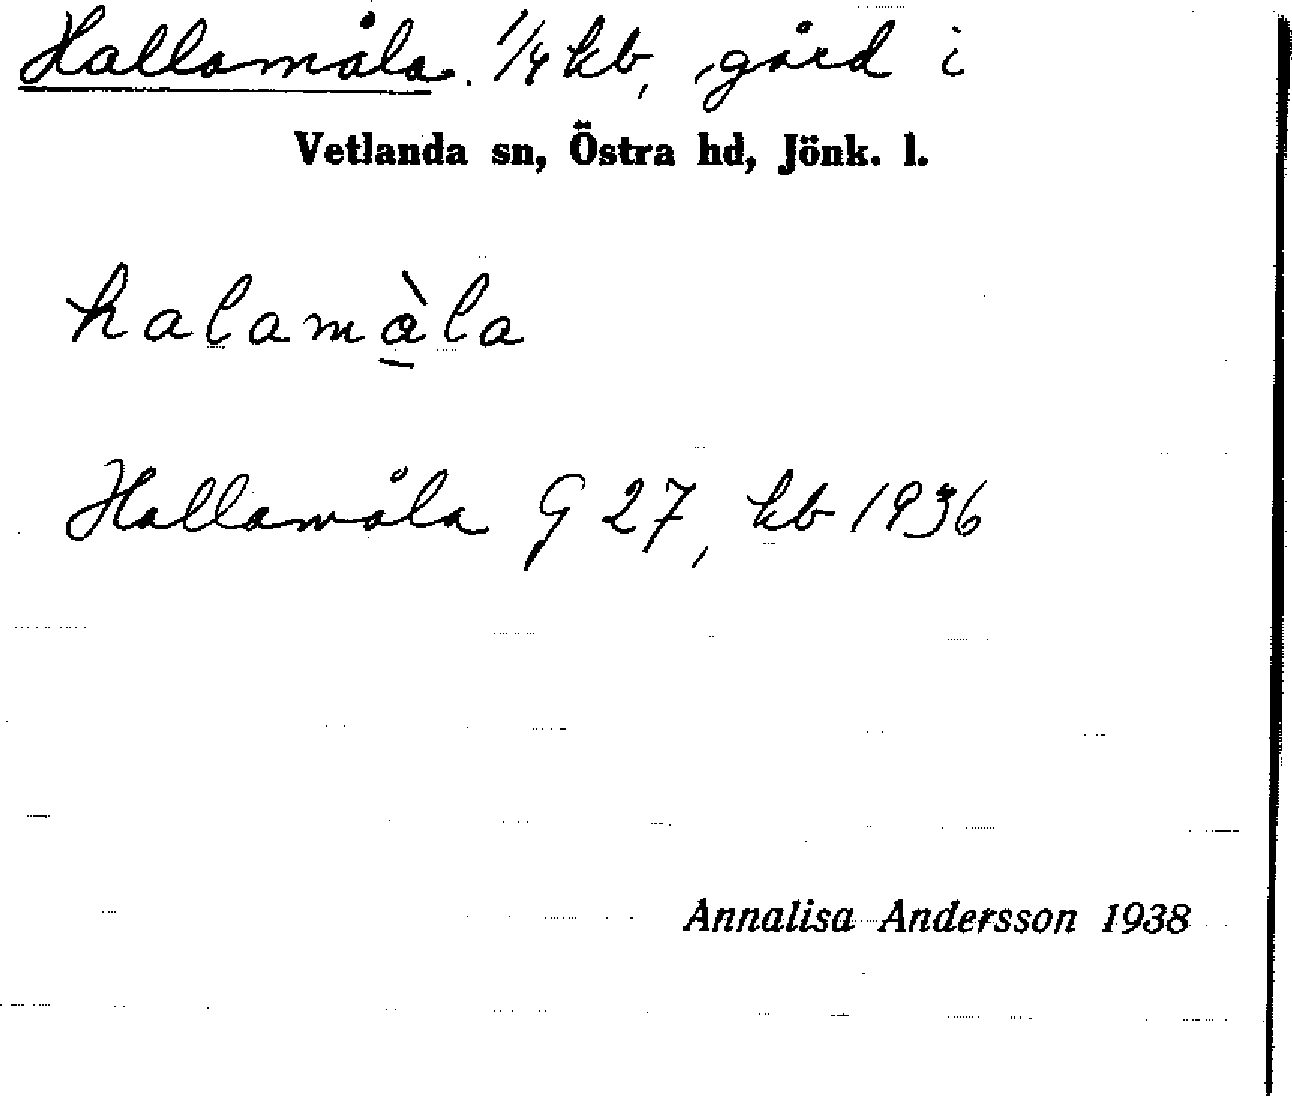 Hallamåla. 1/4 kb, gård i
Vetlanda sn, Östra hd, Jönk. l.
halamàla
Hallamåla G 27, kb 1936
Annalisa Andersson 1938